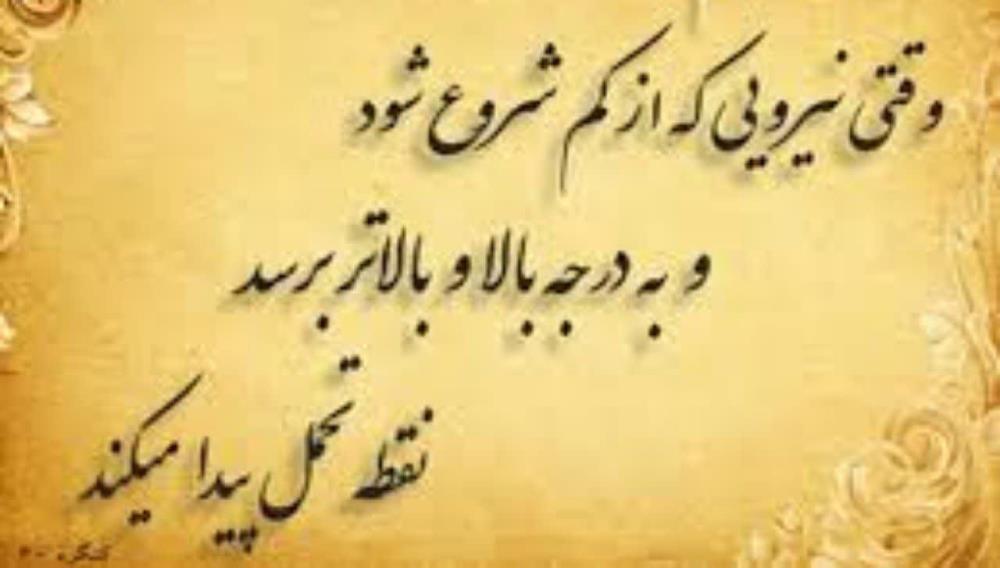 وقتی نیرویی که از کم شروع شود
و به درجه بالا و بالاتر برسد
نقطه تحمل پیدا میکند
کنگره ۶۰